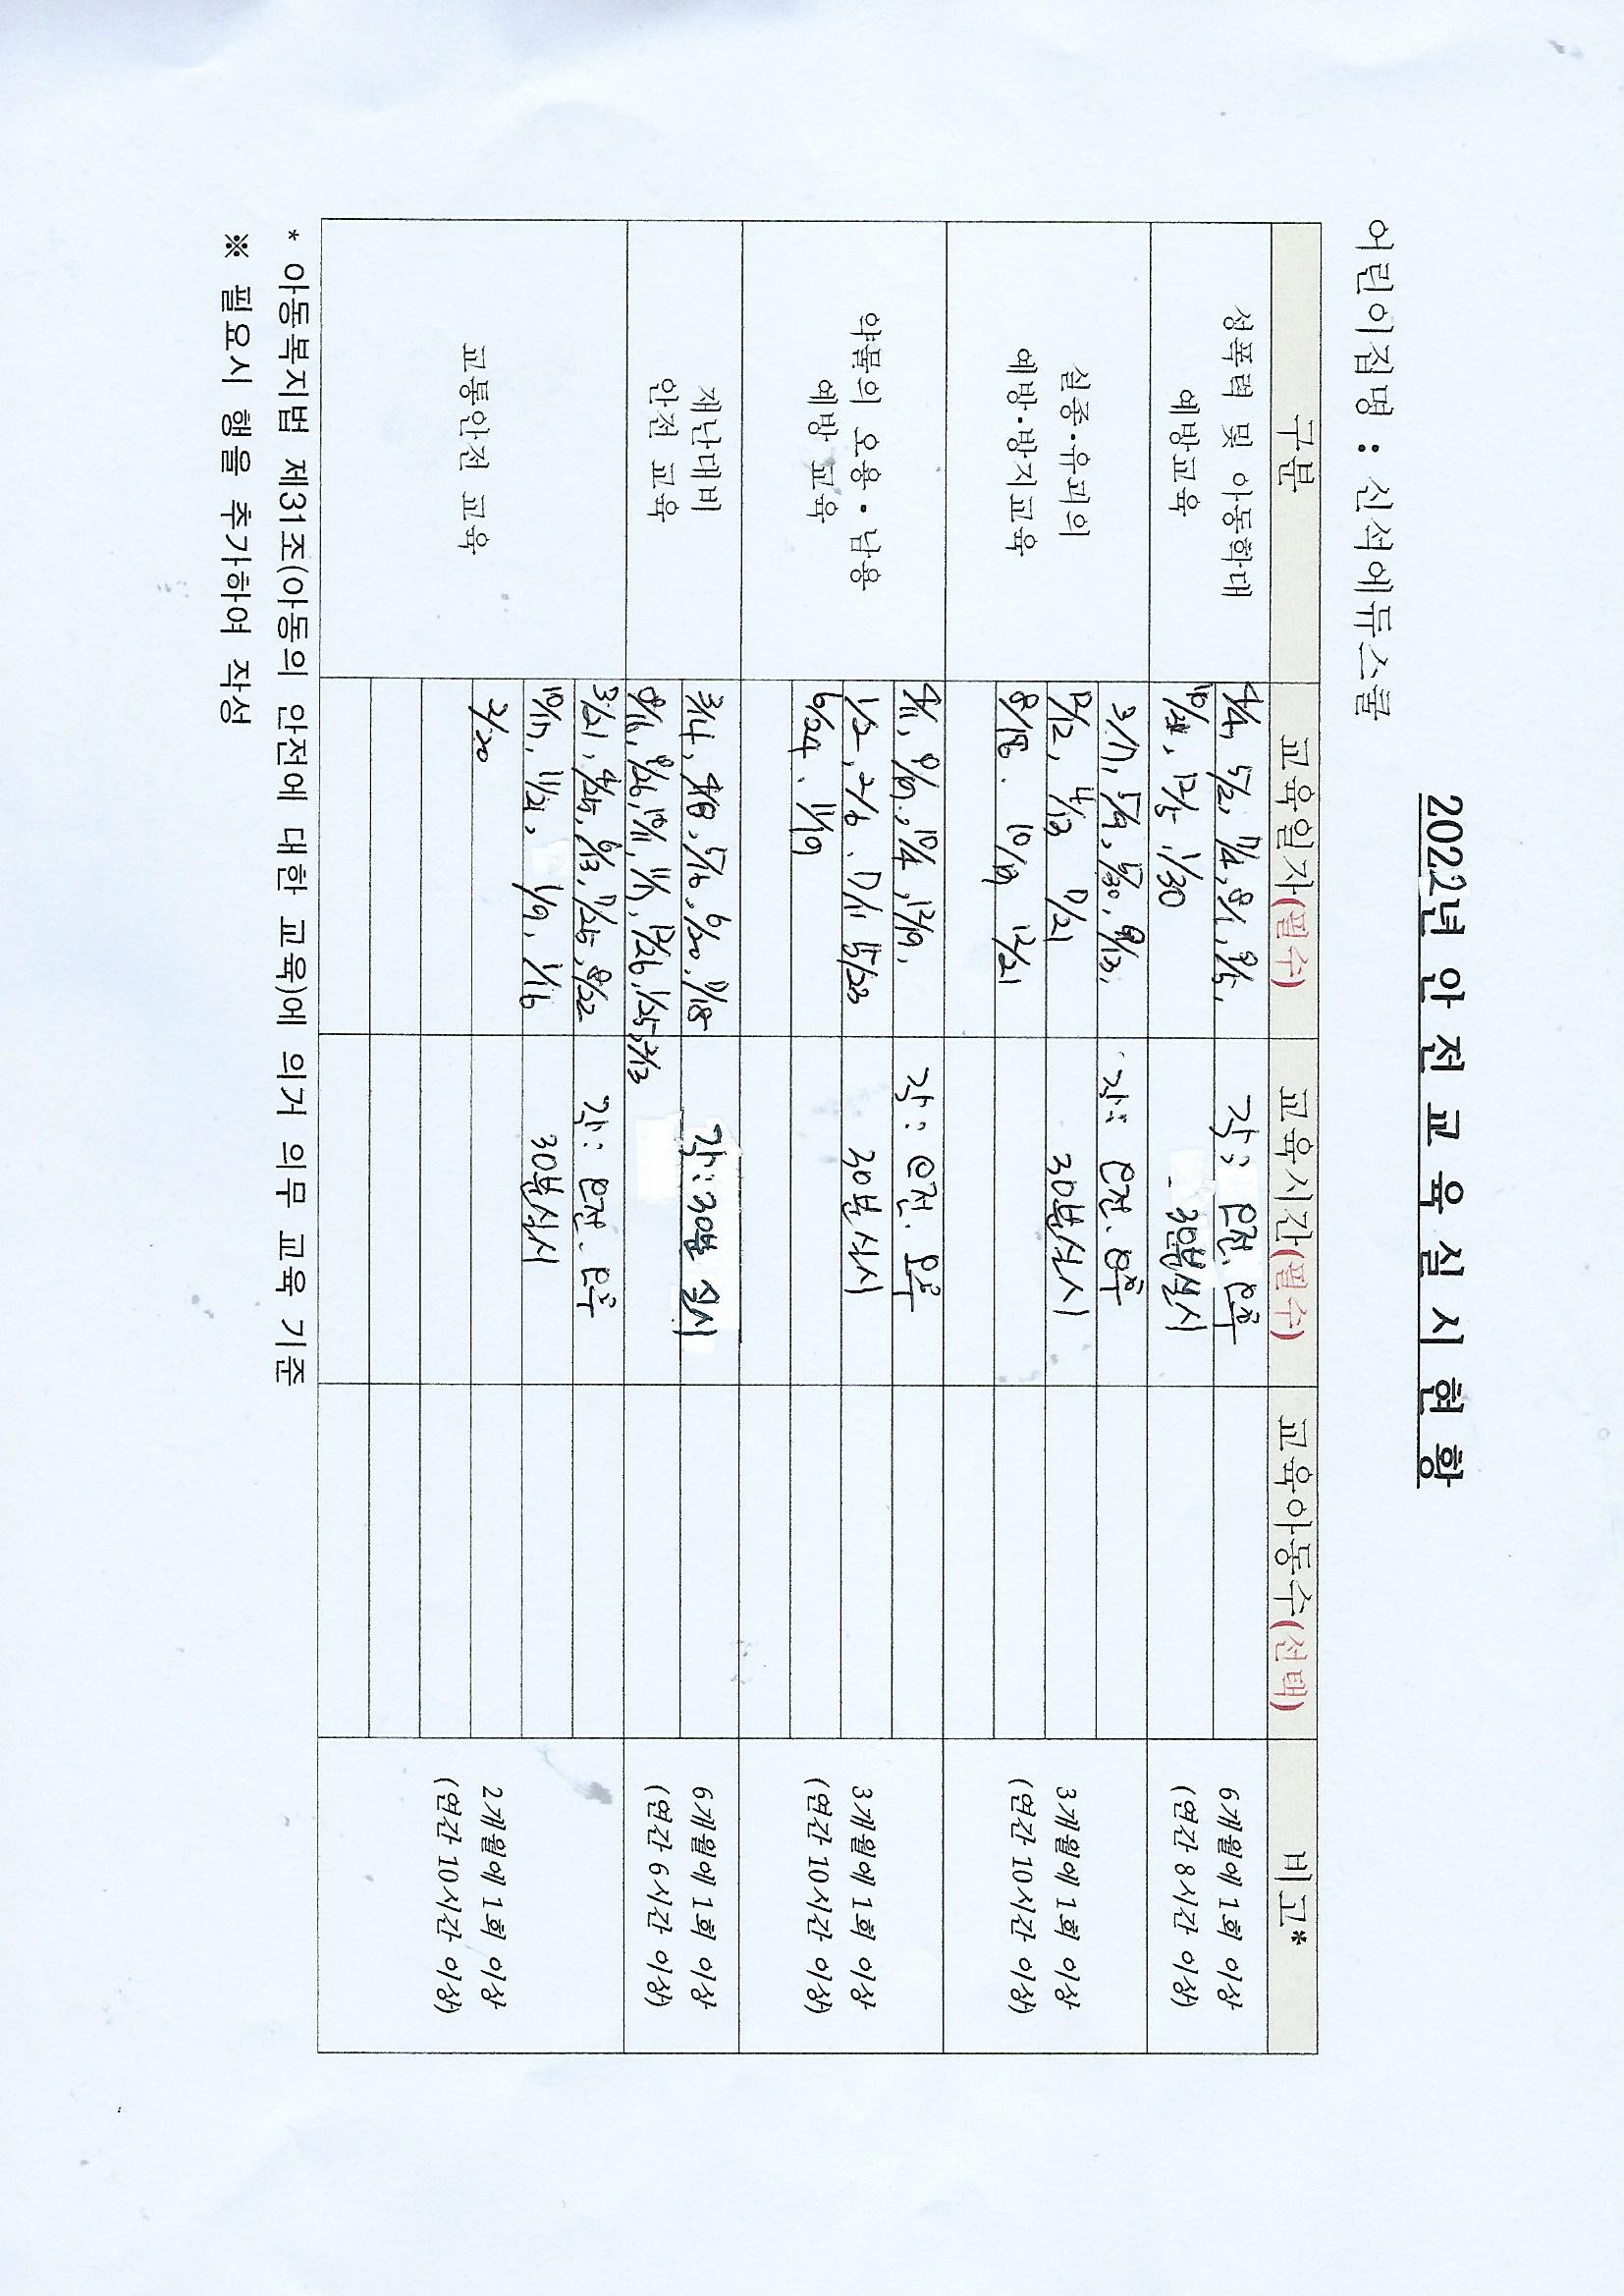 2022년 안 전 교 육 실 시 현 황
어린이집명 : 신석에듀스쿨
구분 교육일자(필수) 교육시간(필수) 교육아동수(선택) 비고*
성폭력 및 아동학대
예방교육
4/4, 5/2, 7/4, 8/1, 9/5,
12/5 1/30
각: 오전. 오후
30분실시
6개월에 1회 이상
(연간 8시간 이상)
실종·유괴의
예방·방지교육
3/7, 5/9, 5/30,
12/12, 7/21
10/19 12/21
각: 오전. 오후
30분실시
3개월에 1회 이상
(연간 10시간 이상)
약물의 오용·남용
예방 교육
4/11, 10/4, 12/19,
1/2, 2/6, 5/23
6/24. 11/19
각: 오전. 오후
30분 실시
3개월에 1회 이상
(연간 10시간 이상)
재난대비
안전 교육
3/14, 4/18, 5/16, 6/20, 7/18
8/26, 10/11, 11/7, 12/26, 1/25, 2/13
각: 30분 실시
6개월에 1회 이상
(연간 6시간 이상)
교통안전 교육
3/21, 4/25, 6/13, 7/25, 8/22
10/17, 11/21, 1/9, 1/16
2/20
각: 오전. 오후
30분실시
2개월에 1회 이상
(연간 10시간 이상)
* 아동복지법 제31조(아동의 안전에 대한 교육)에 의거 의무 교육 기준
※ 필요시 행을 추가하여 작성